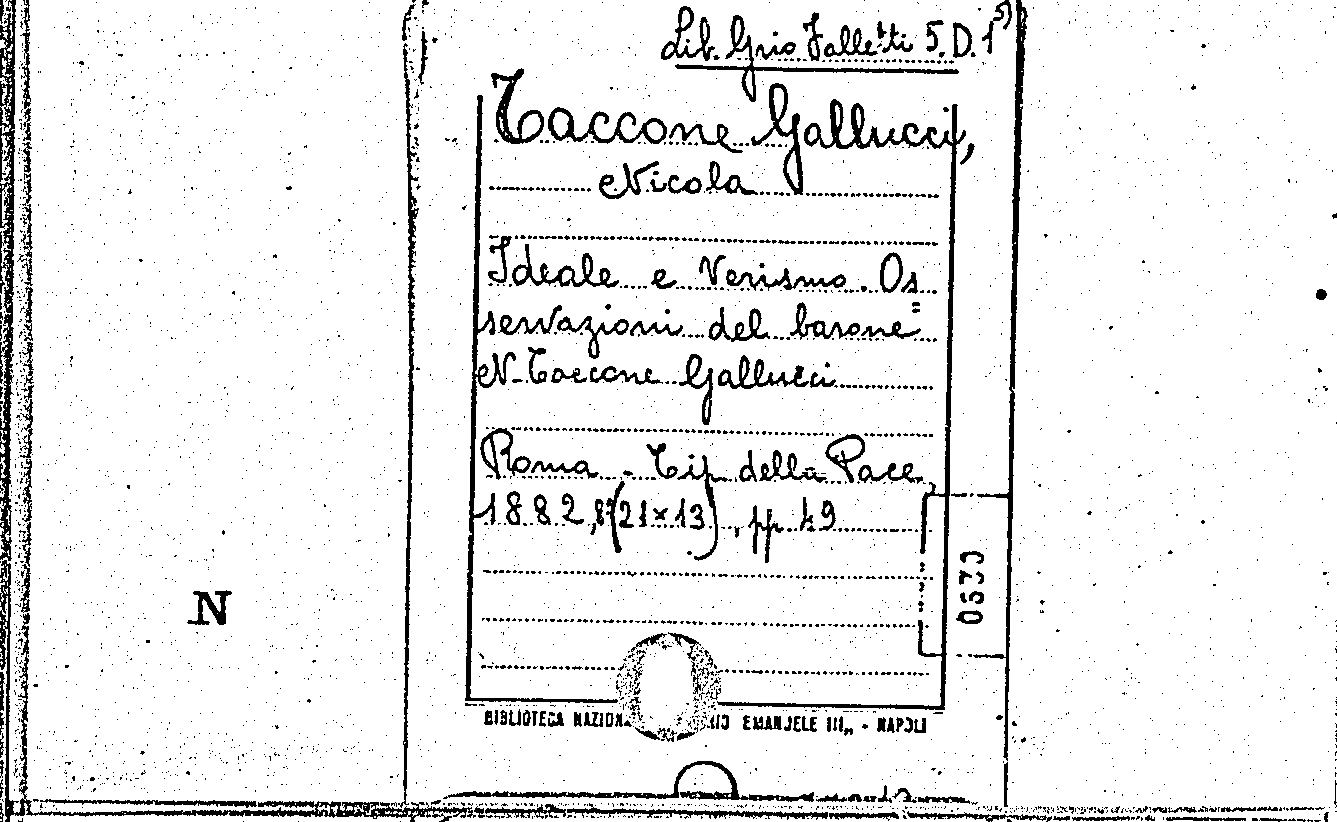 Lib. Grio Falletti 5. D. 1 5)
Taccone Gallucci,
Nicola
Ideale e Verismo. Os=
servazioni del barone
N. Taccone Gallucci
Roma - Tip. della Pace,
1882, 8° (21×13), pp. 49
0630
N
BIBLIOTECA NAZION IO EMANUELE III,, - NAPOLI